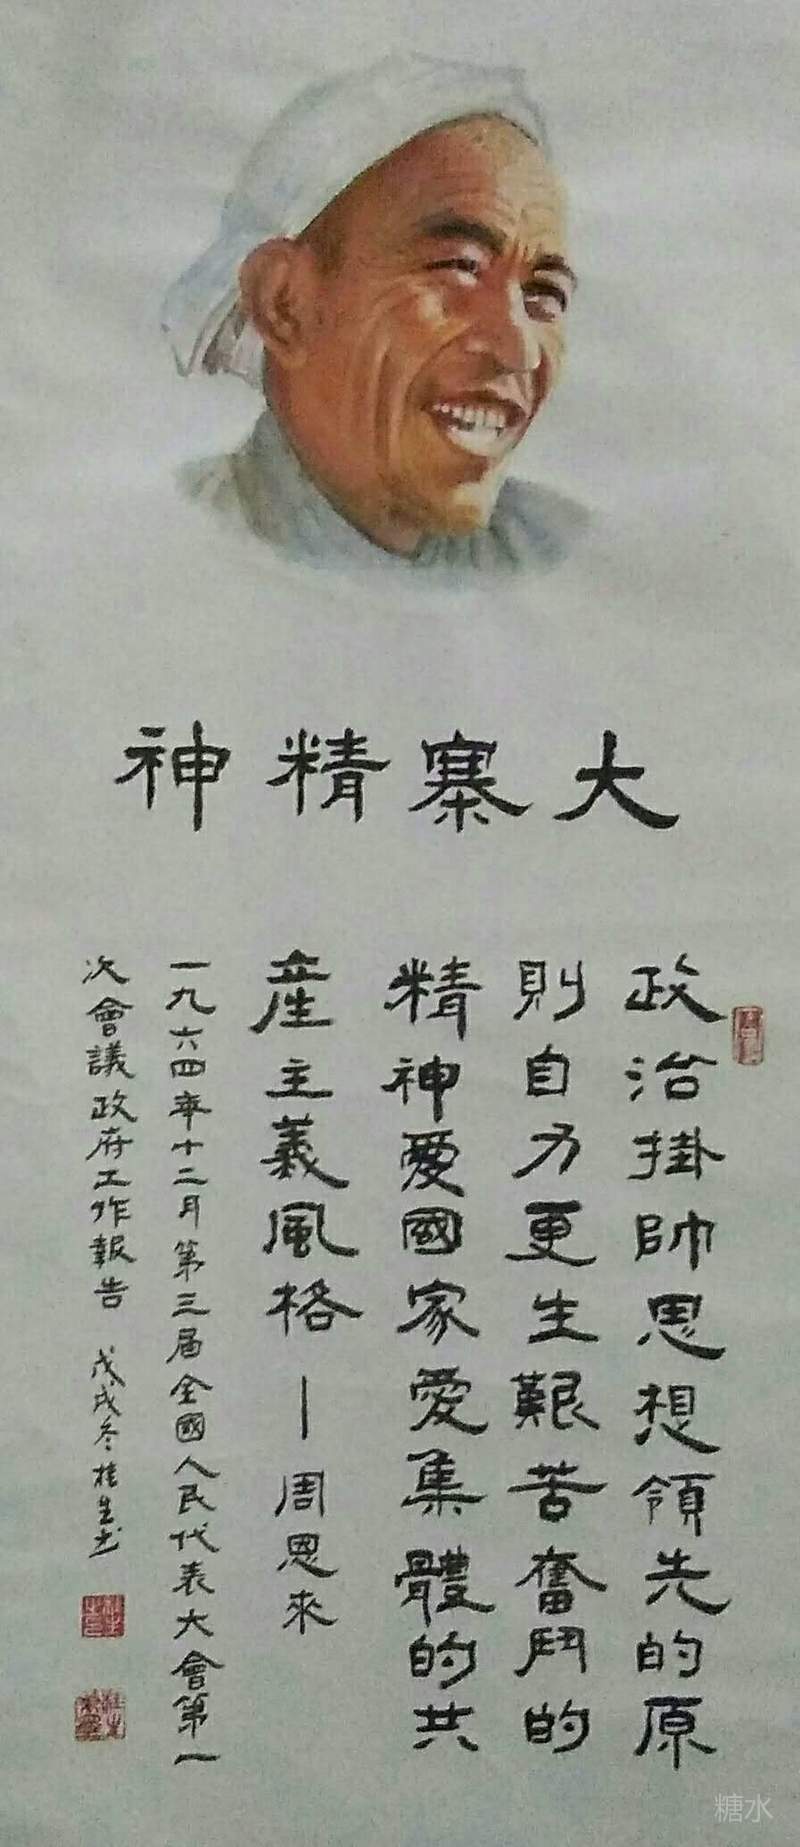 大寨精神
政治掛帥思想領先的原
則自力更生艱苦奮鬥的
精神愛國家愛集體的共
産主義風格—周恩来
一九六四年十二月第三届全國人民代表大會第一
次會議政府工作報告 戊戌冬桂生书
糖水